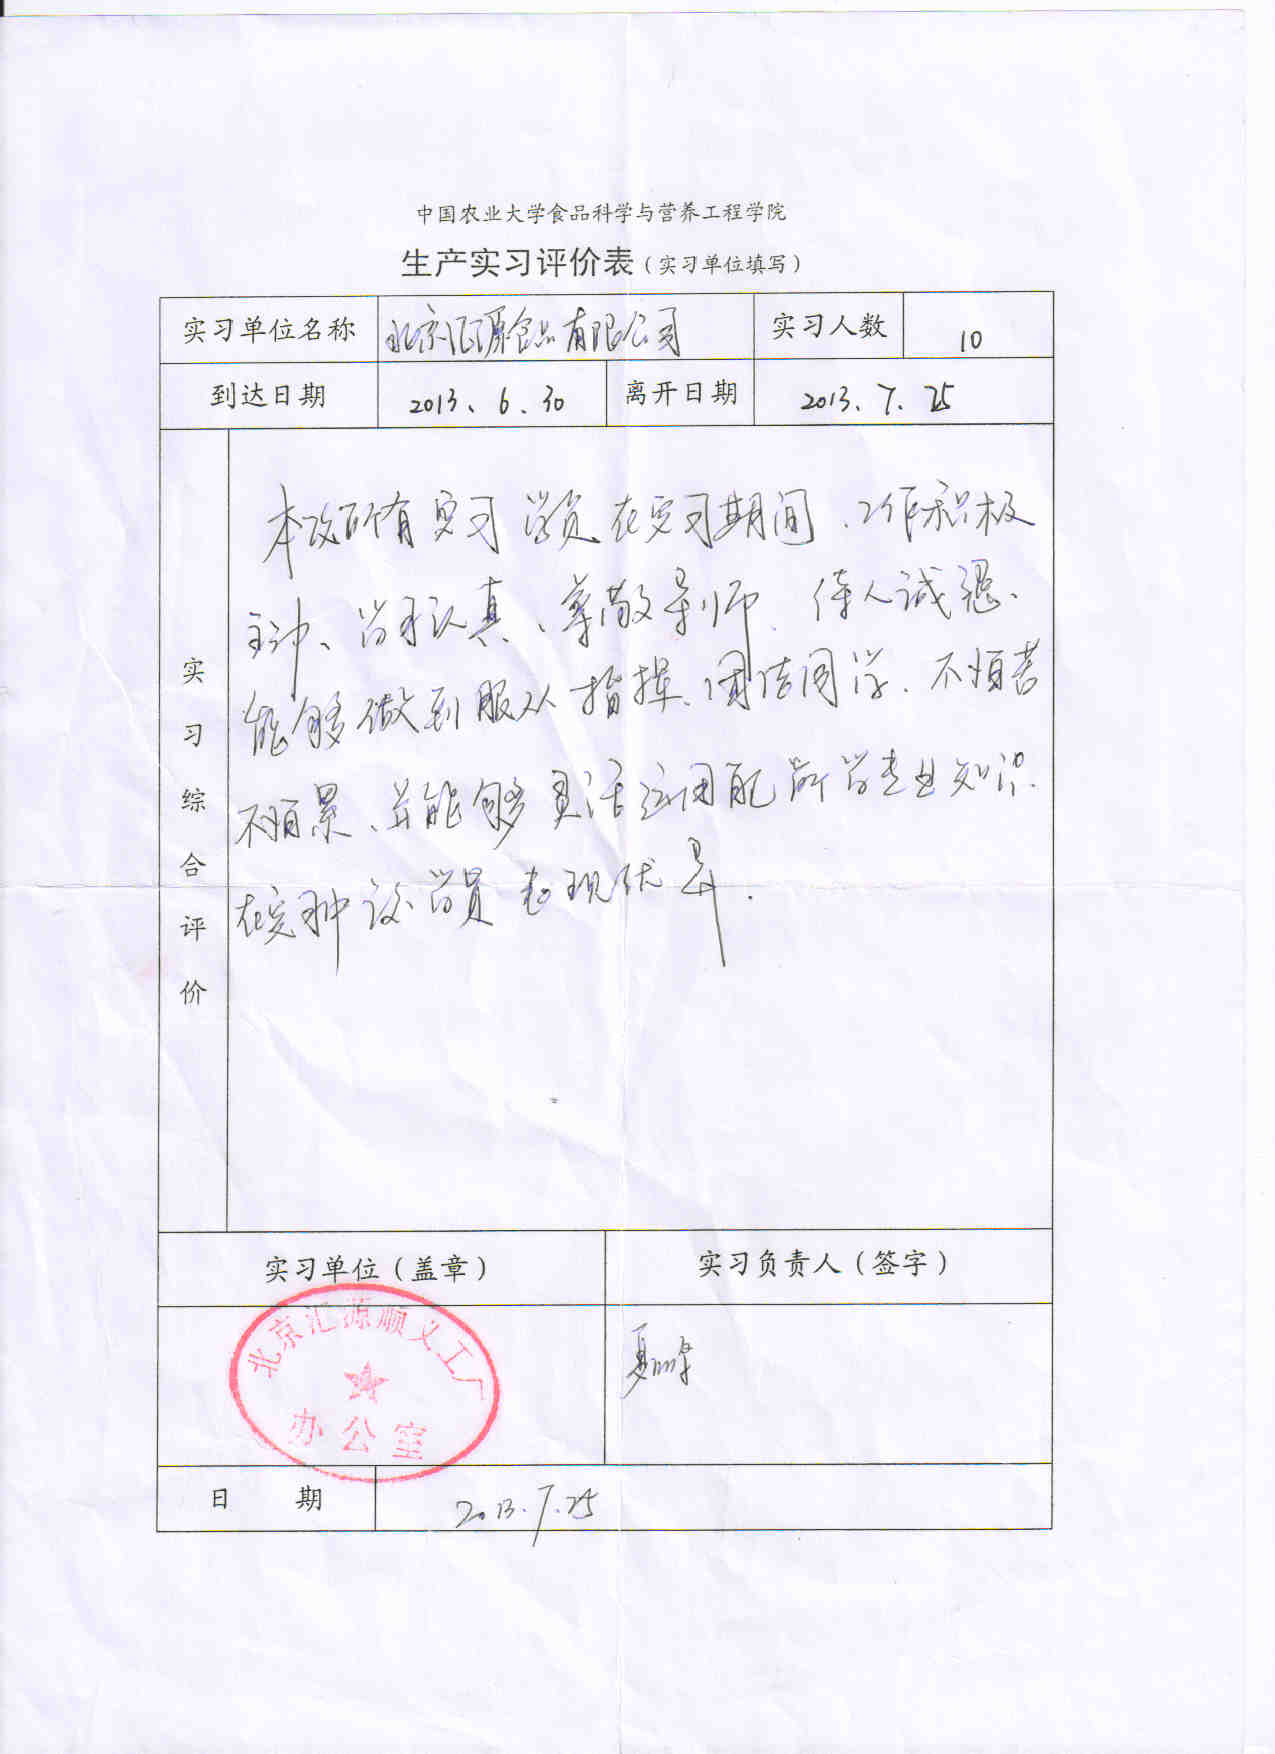 中国农业大学食品科学与营养工程学院
生产实习评价表（实习单位填写）
实习单位名称 北京汇源食品有限公司 实习人数 10
到达日期 2013.6.30 离开日期 2013.7.25
实习综合评价
本次所有实习学员在实习期间、工作积极
主动、学习认真、尊敬导师、待人诚恳、
能够做到服从指挥、团结同学、不怕苦
不怕累、并能够灵活运用所学专业知识.
学员表现优异.
实习单位（盖章） 实习负责人（签字）
北京汇源顺义工厂
办公室
日 期 2013.7.25